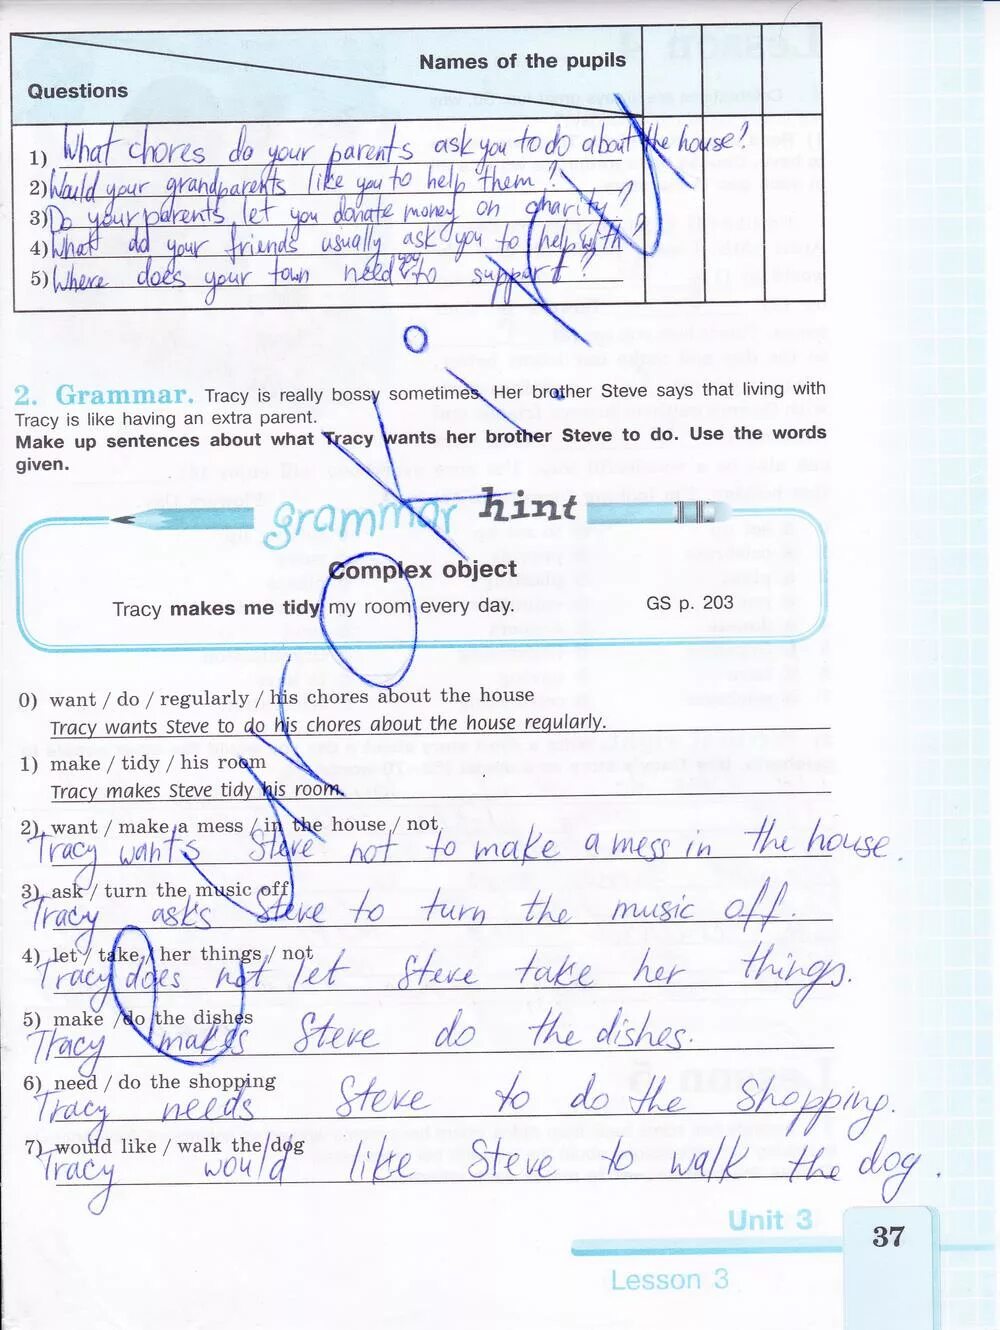 Names of the pupils
Questions
1) What chores do your parents ask you to do about the house?
2) Would your grandparents like you to help them?
3) Do your parents let you donate money on charity?
4) What do your friends usually ask you to help with?
5) Where does your town need you to support?
2. Grammar. Tracy is really bossy sometimes. Her brother Steve says that living with
Tracy is like having an extra parent.
Make up sentences about what Tracy wants her brother Steve to do. Use the words
given.
grammar hint
Complex object
Tracy makes me tidy my room every day. GS p. 203
0) want / do / regularly / his chores about the house
Tracy wants Steve to do his chores about the house regularly.
1) make / tidy / his room
Tracy makes Steve tidy his room.
2) want / make a mess / in the house / not
Tracy wants Steve not to make a mess in the house.
3) ask / turn the music off
Tracy asks Steve to turn the music off.
4) let / take / her things / not
Tracy does not let Steve take her things.
5) make / do the dishes
Tracy makes Steve do the dishes.
6) need / do the shopping
Tracy needs Steve to do the shopping.
7) would like / walk the dog
Tracy would like Steve to walk the dog.
Unit 3
37
Lesson 3